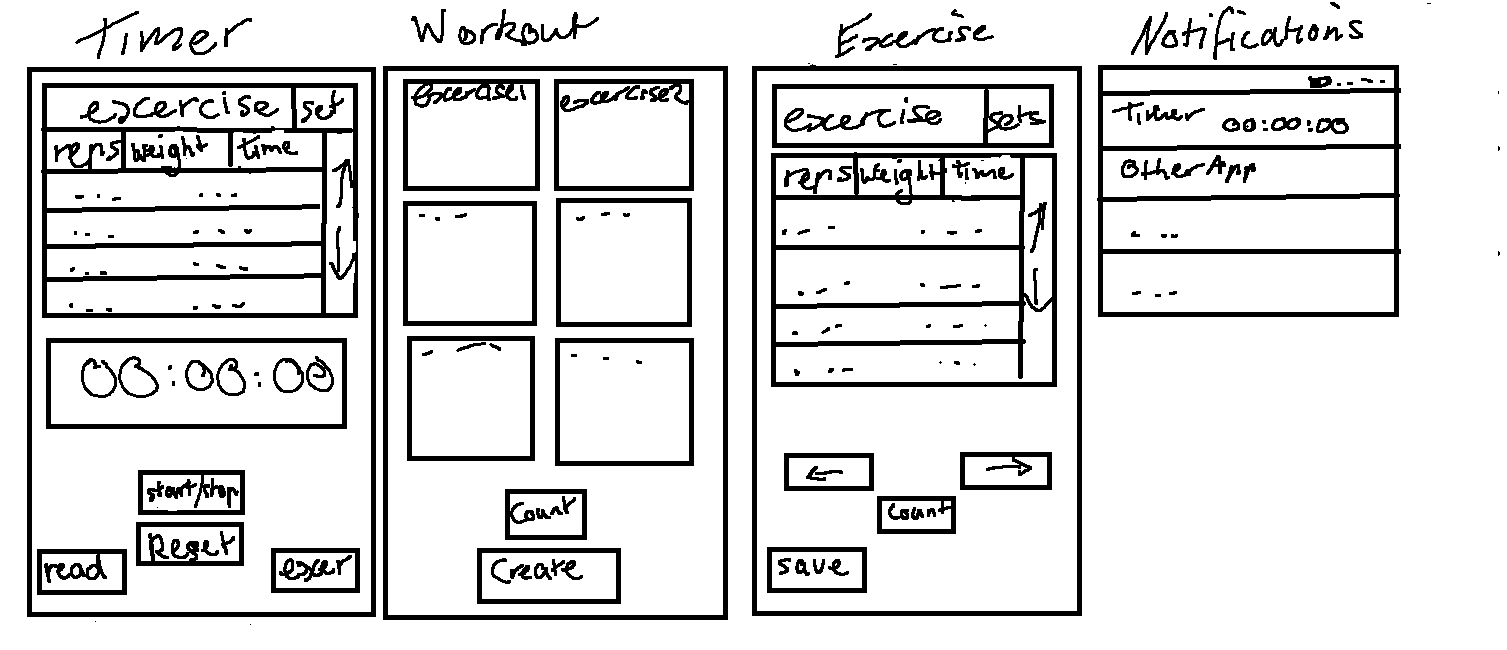 Timer
excercise set
reps weight time
00:00:00
start/stop
Reset
read excer
Workout
excercise1 excercise2
Count
Create
Excercise
excercise sets
reps weight time
← →
Count
save
Notifications
Timer 00:00:00
Other App